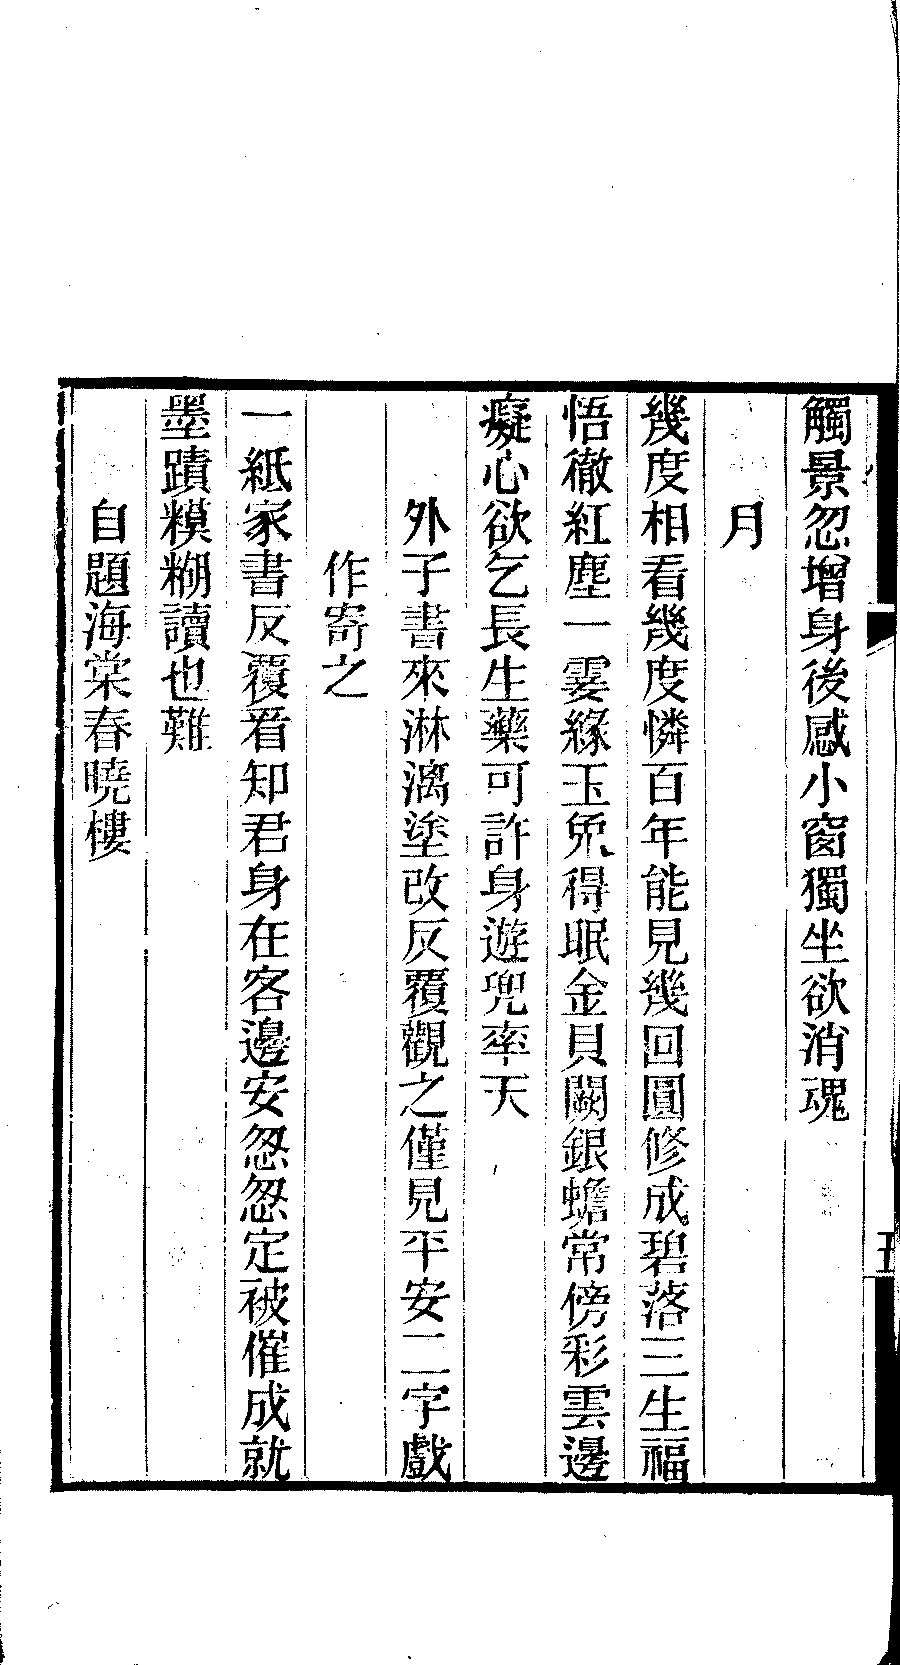 觸景忽增身後感小窗獨坐欲消魂
月
幾度相看幾度憐百年能見幾回圓修成碧落三生福
悟徹紅塵一霎緣玉兎得眠金貝闕銀蟾常傍彩雲邊
癡心欲乞長生藥可許身遊兜率天
外子書來淋漓塗改反覆觀之僅見平安二字戲
作寄之
一紙家書反覆看知君身在客邊安怱怱定被催成就
墨蹟糢糊讀也難
自題海棠春曉樓